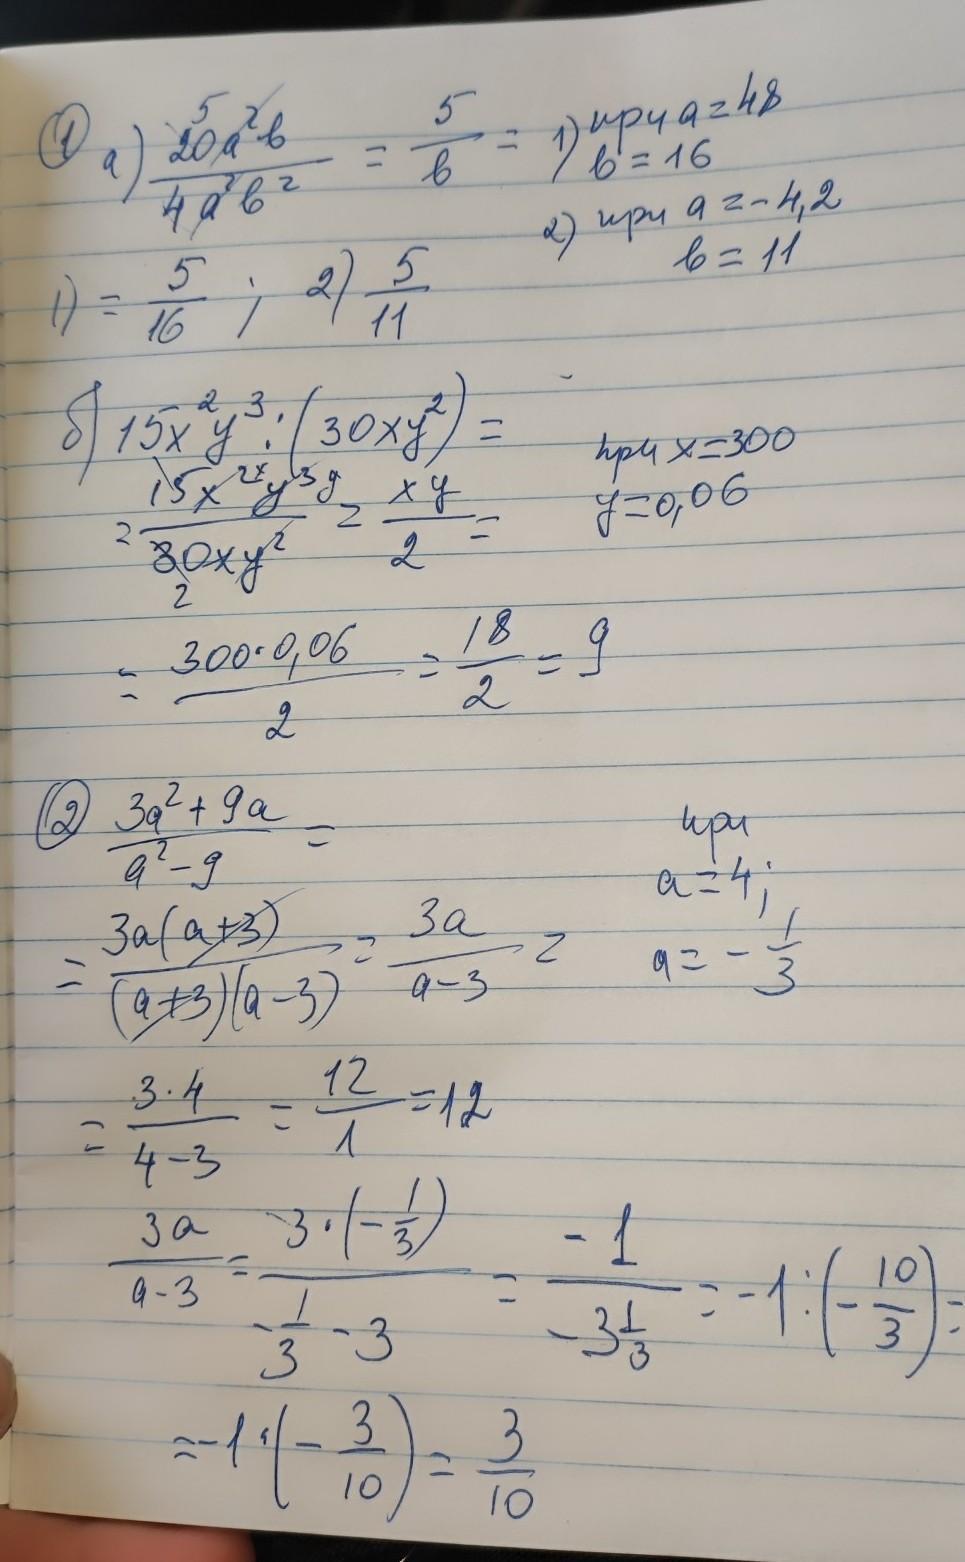 ① а) 20a²b / 4a²b² = 5/b = 1) при a=48
b=16
2) при a=-4,2
b=11
1) = 5/16 ; 2) 5/11
б) 15x²y³:(30xy²)=
при x=300
y=0,06
15x²y³ / 30xy² = xy/2 =
= 300·0,06 / 2 = 18/2 = 9
② 3a²+9a / a²-9 =
при
a=4;
a=-1/3
= 3a(a+3) / (a+3)(a-3) = 3a / a-3 =
= 3·4 / 4-3 = 12/1 =12
3a / a-3 = 3·(-1/3) / -1/3 -3 = -1 / -3 1/3 = -1:(-10/3)=
=-1·(-3/10)= 3/10